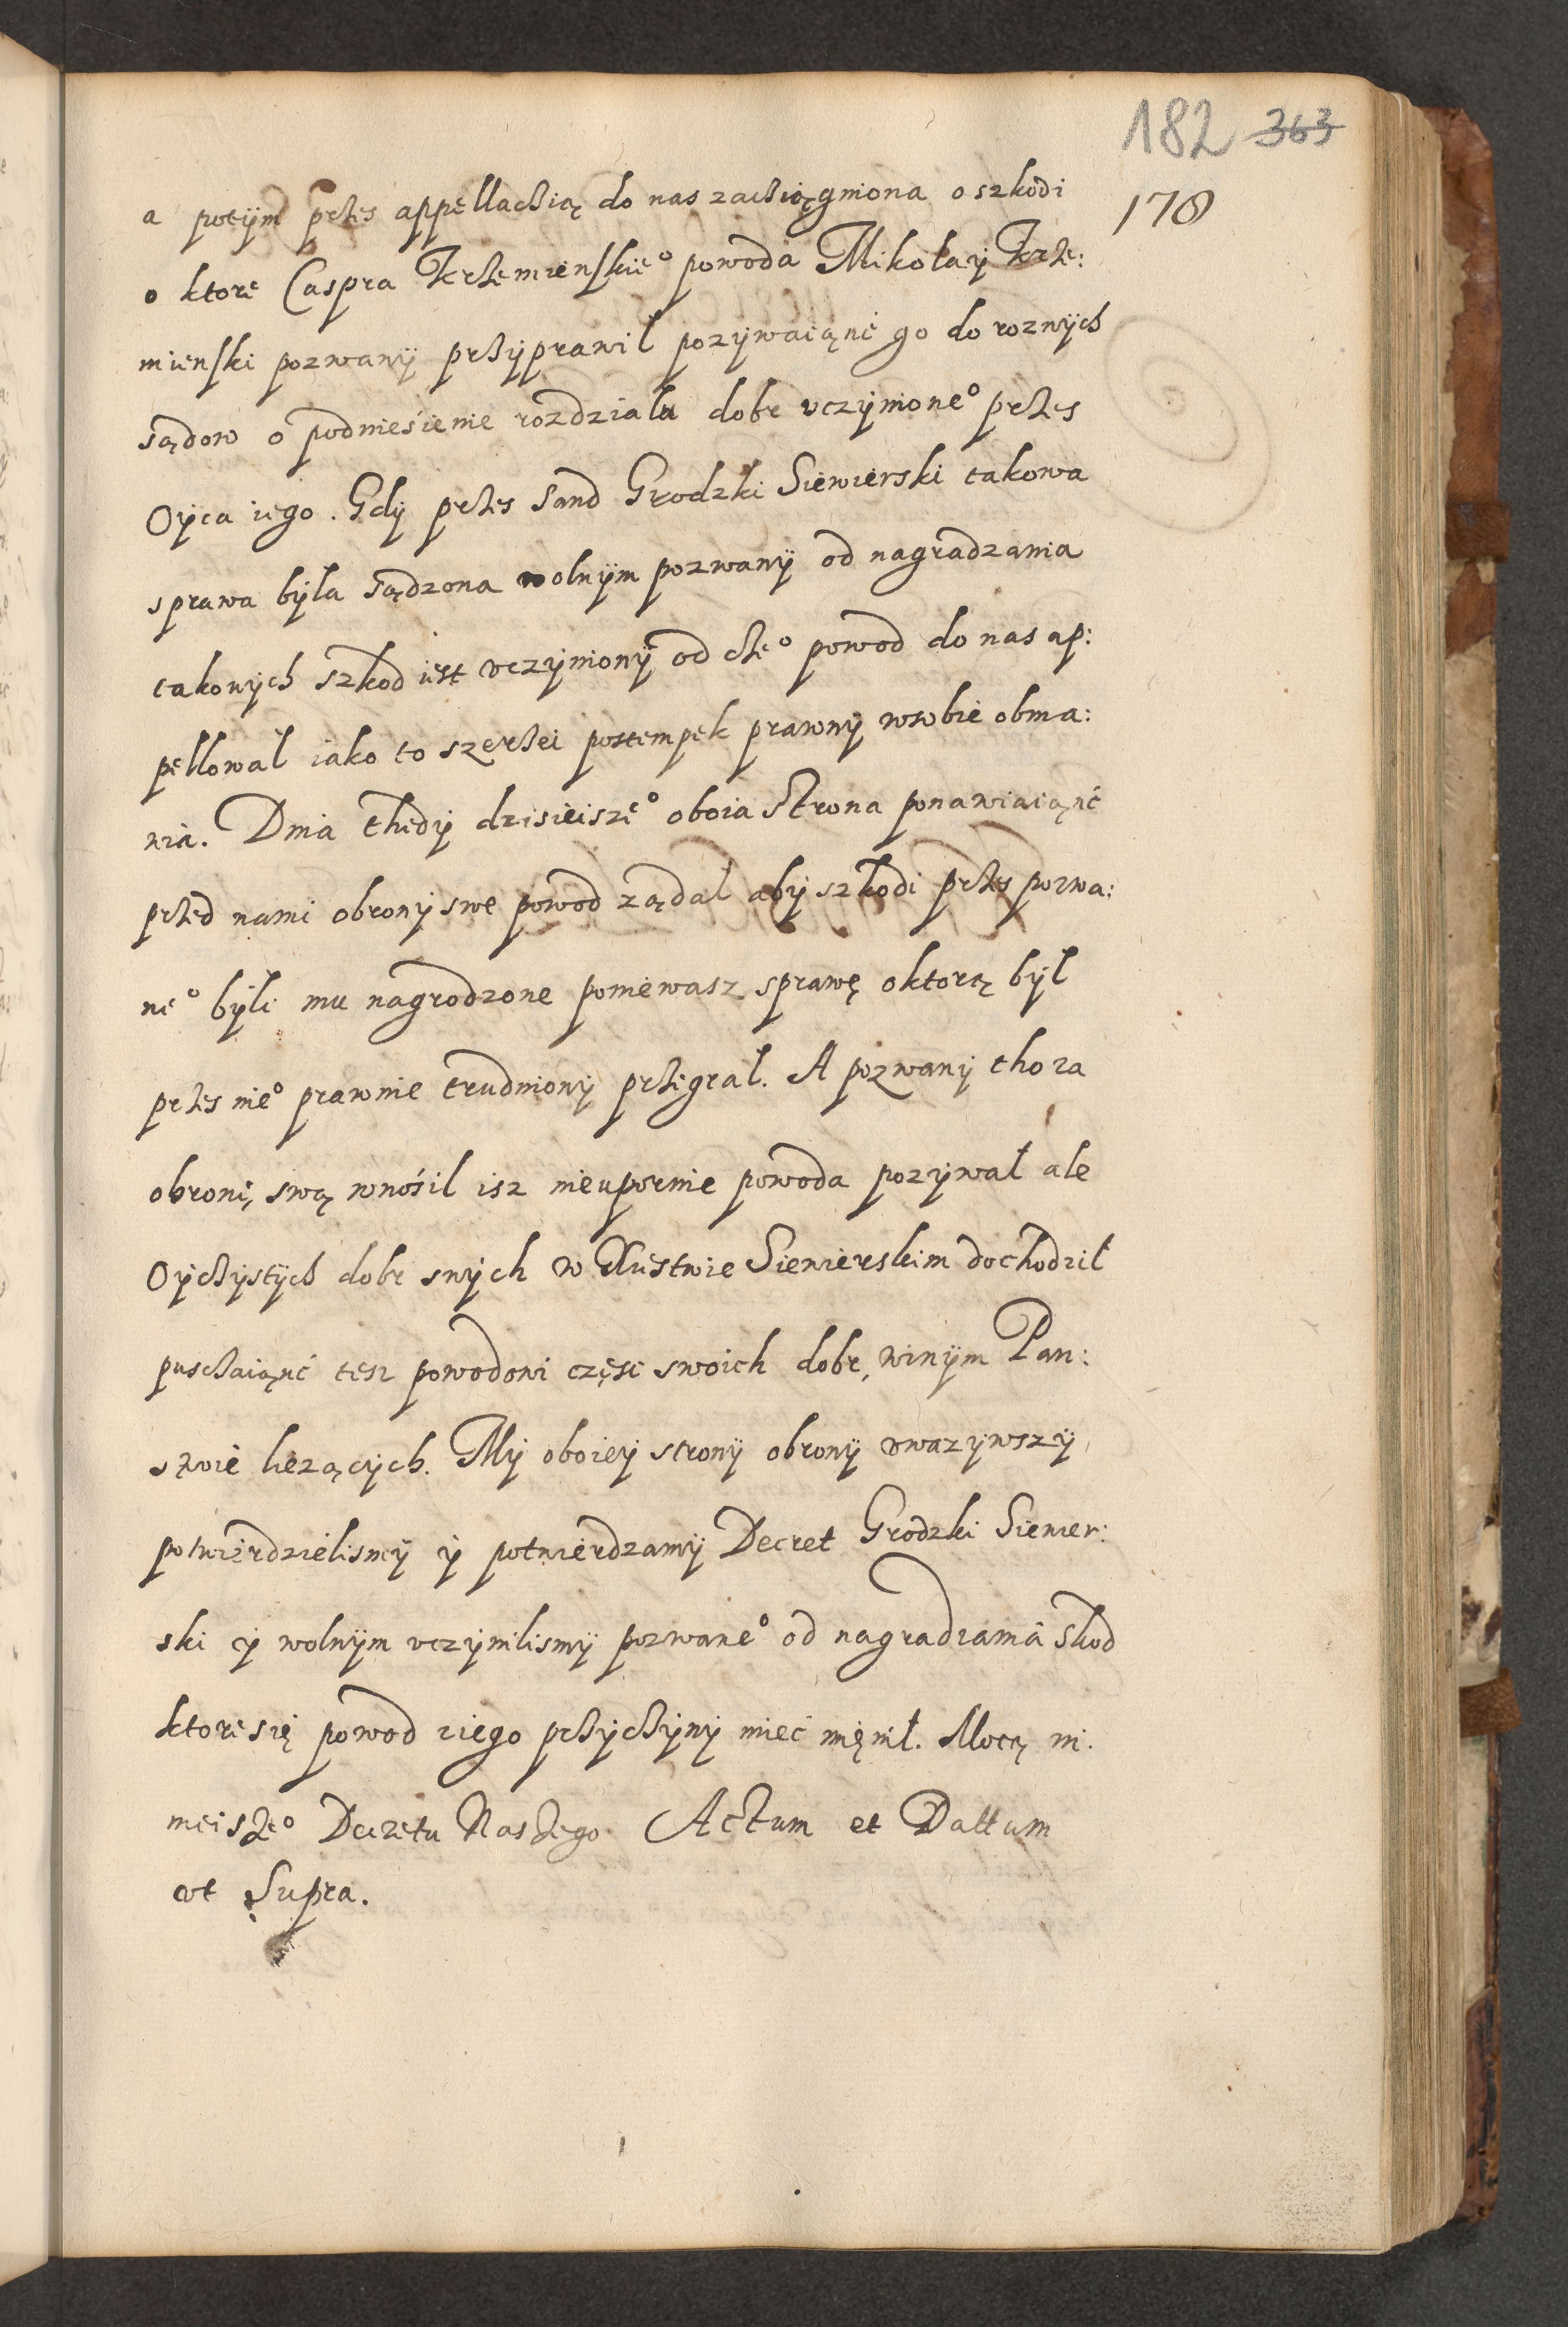 182 363
178
a potÿm przes appellacżią do nas zacżięgniona o szkodi
o ktore Caspra Krzemienskie° powoda Mikołaÿ Krze:
mienski pozwanÿ przÿprawił pozÿwaiąnc go do roznÿch
sądow o podnieśienie rozdziału dobr vczÿnione° przes
Oÿca iego. Gdÿ przes Sand Grodzki Siewierski takowa
sprawa bÿla sądzona wolnÿm pozwanÿ od nagradzania
takowÿch szkod iest vczÿnionÿ od cze° powod do nas ap:
pellowal iako to szerzei postempek prawnÿ wsobie obma:
nia. Dnia thedÿ dzisieisze° oboia strona ponawiaiąnc
przed nami obronÿ swe powod ządał abÿ szkodi przes pozwa:
ne° bÿli mu nagrodzone poniewasz sprawę oktorą bÿł
przes nie° prawnie trudnionÿ przegrał. A pozwanÿ tho za
obronę swą wnośil isz nieupornie powoda pozÿwał ale
Oÿcżÿstÿch dobr swÿch w Xięstwie Siewierskim dochodził
puscżaiąnc tesz powodowi częsc swoich dobr, winÿm Pan:
stwie liezącÿch. Mÿ oboieÿ stronÿ obronÿ vwazÿwszÿ
potwierdzielismÿ ÿ potwierdzamÿ Decret Grodzki Siewier:
ski ÿ wolnÿm vczÿnilismÿ pozwane° od nagradzania skod
ktore się powod ziego przÿcżÿnÿ miec mięnił. Mocą ni:
nieisze° Decretu Naszego Actum et Dattum
vt Supra.